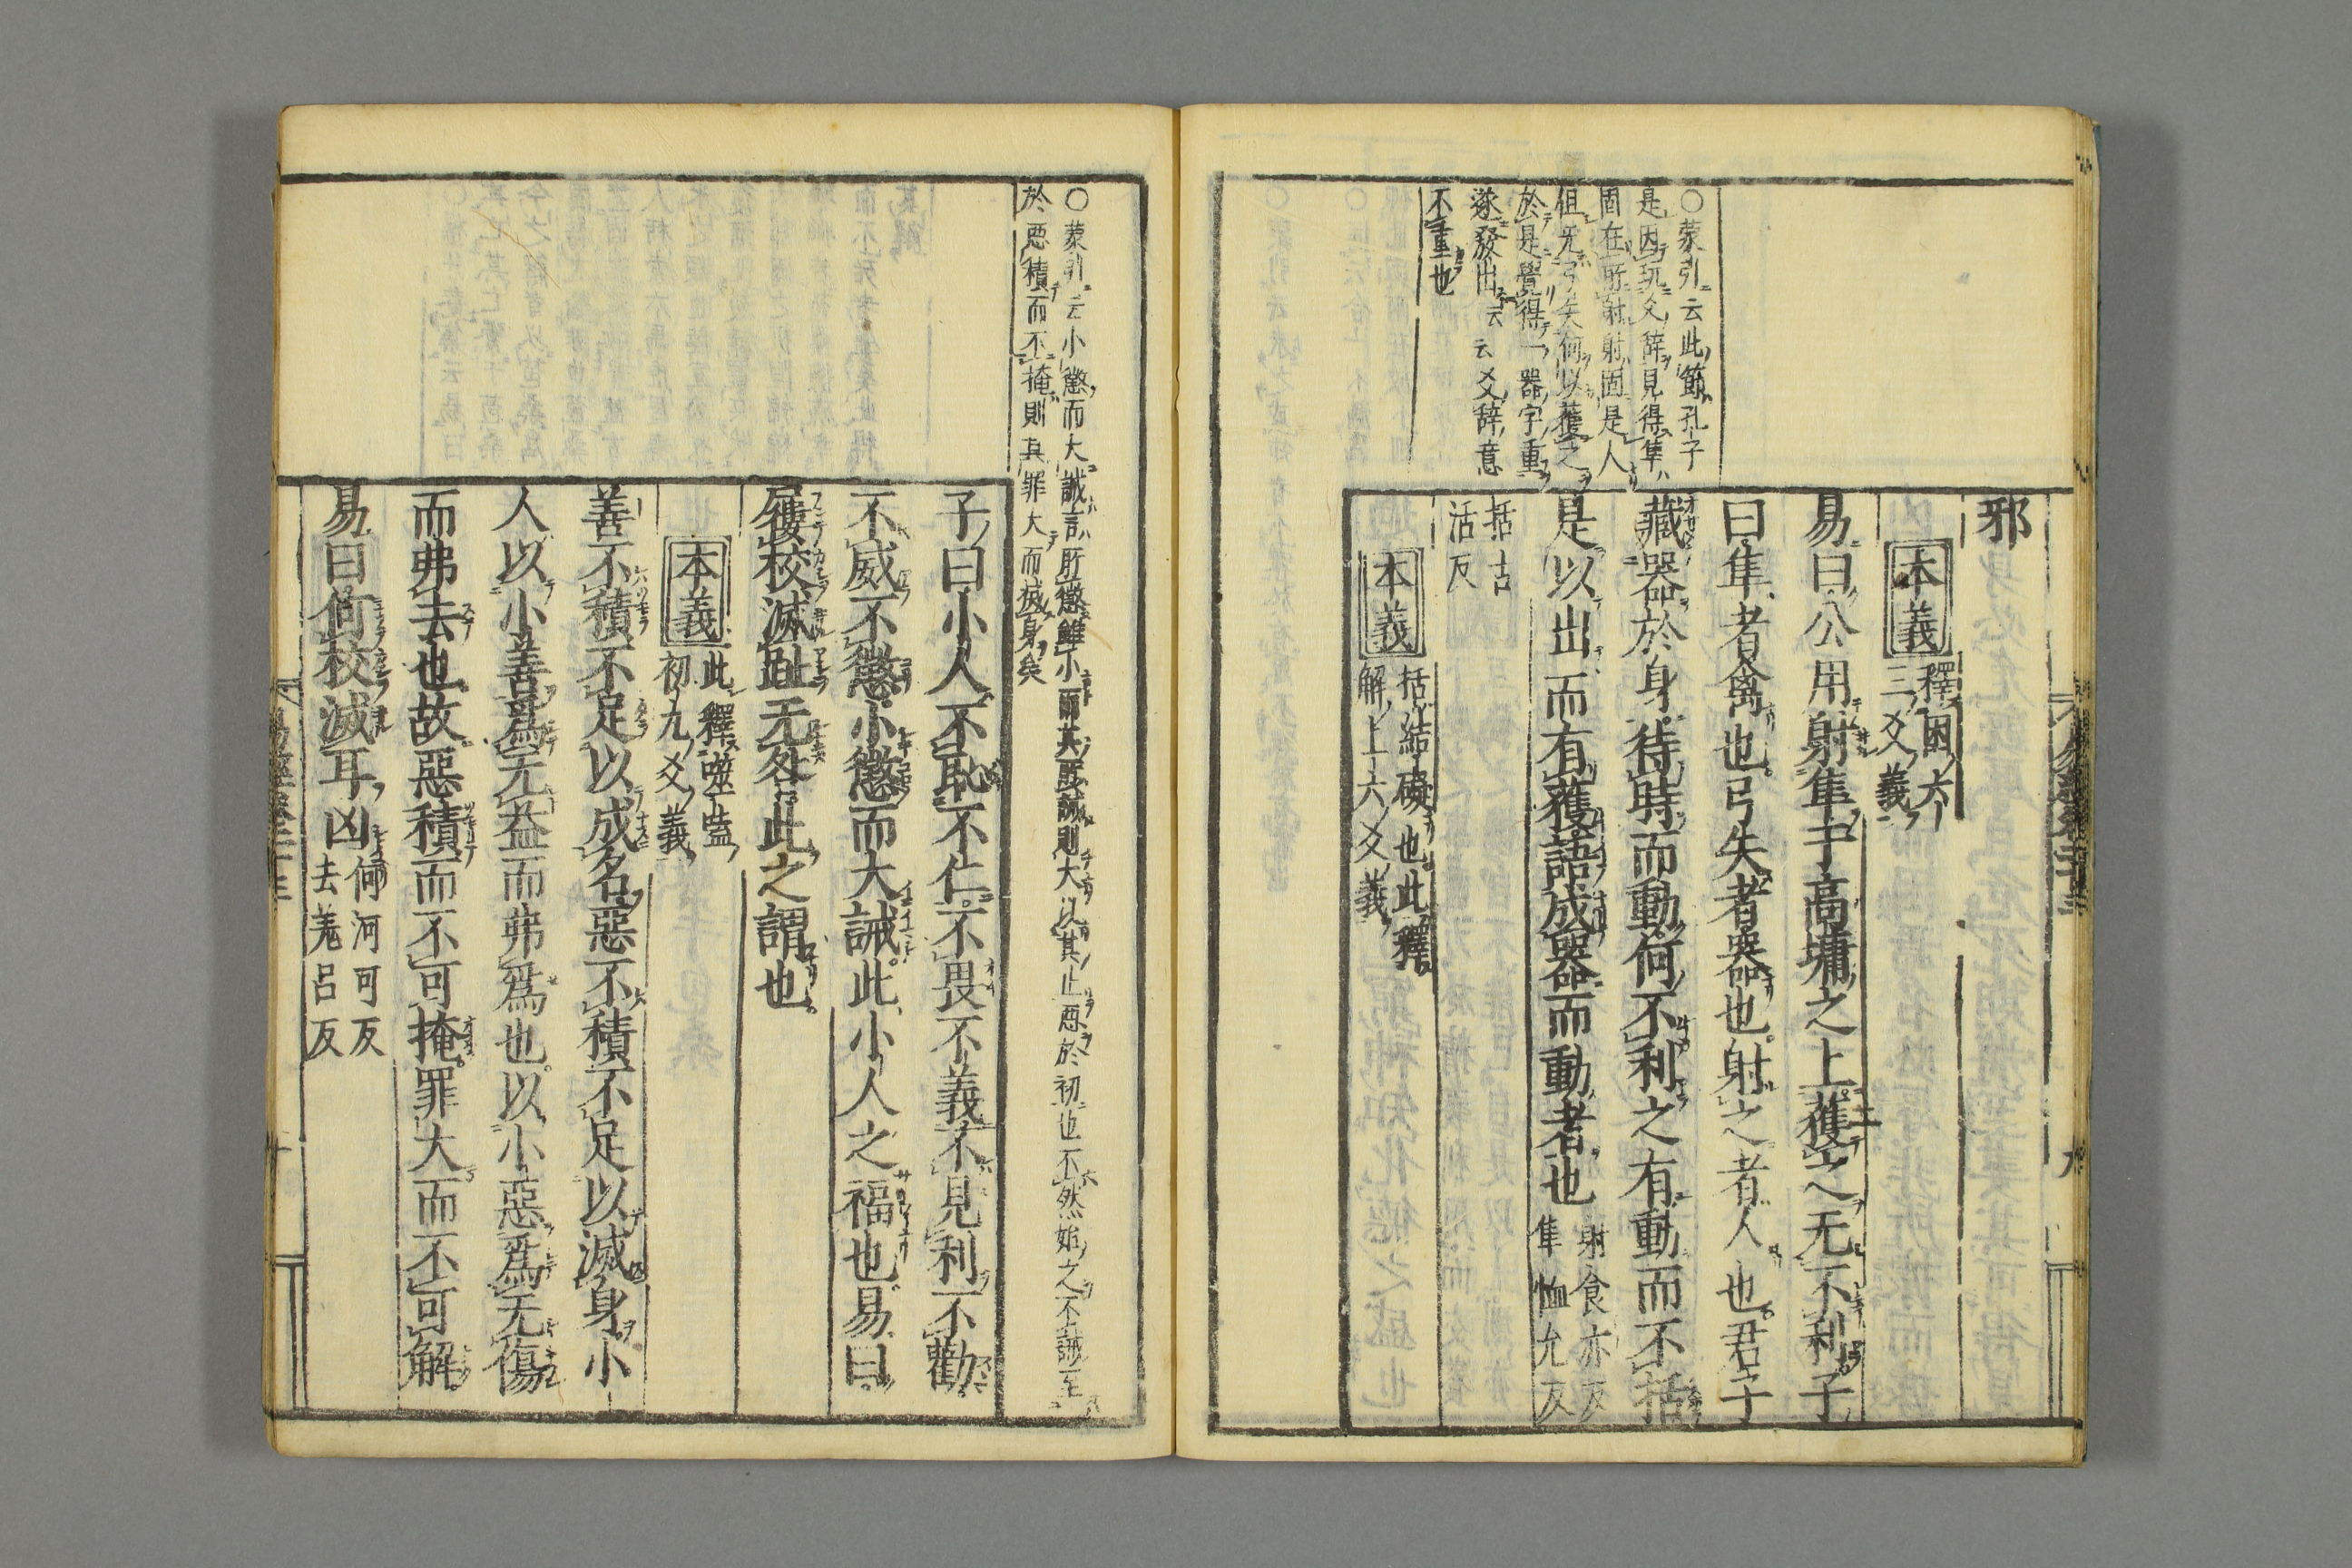 邪
本義
釋困六
三爻義
易曰公用射隼于高墉之上獲之无不利子
曰隼者禽也弓矢者器也射之者人也君子
藏器於身待時而動何不利之有動而不括
是以出而有獲語成器而動者也
射食亦反
隼恤允反
括古
活反
本義
括結礙也此釋
解上六爻義
〇蒙引云此節孔子
是因玩爻辭見得隼
固在所射射固是人
但无弓矢何以獲之
於是覺得一器字重
遂發出云云爻辭意
不重也
〇蒙引云小懲而大誡言所懲雖小而其所誡則大以其止惡於初也不然始之不誡至
於惡積而不掩則其罪大而滅身矣
子曰小人不恥不仁不畏不義不見利不勸
不威不懲小懲而大誡此小人之福也易曰
屨校滅趾无咎此之謂也
本義
此釋噬嗑
初九爻義
善不積不足以成名惡不積不足以滅身小
人以小善爲无益而弗爲也以小惡爲无傷
而弗去也故惡積而不可掩罪大而不可解
易曰何校滅耳凶
何河可反
去羌呂反